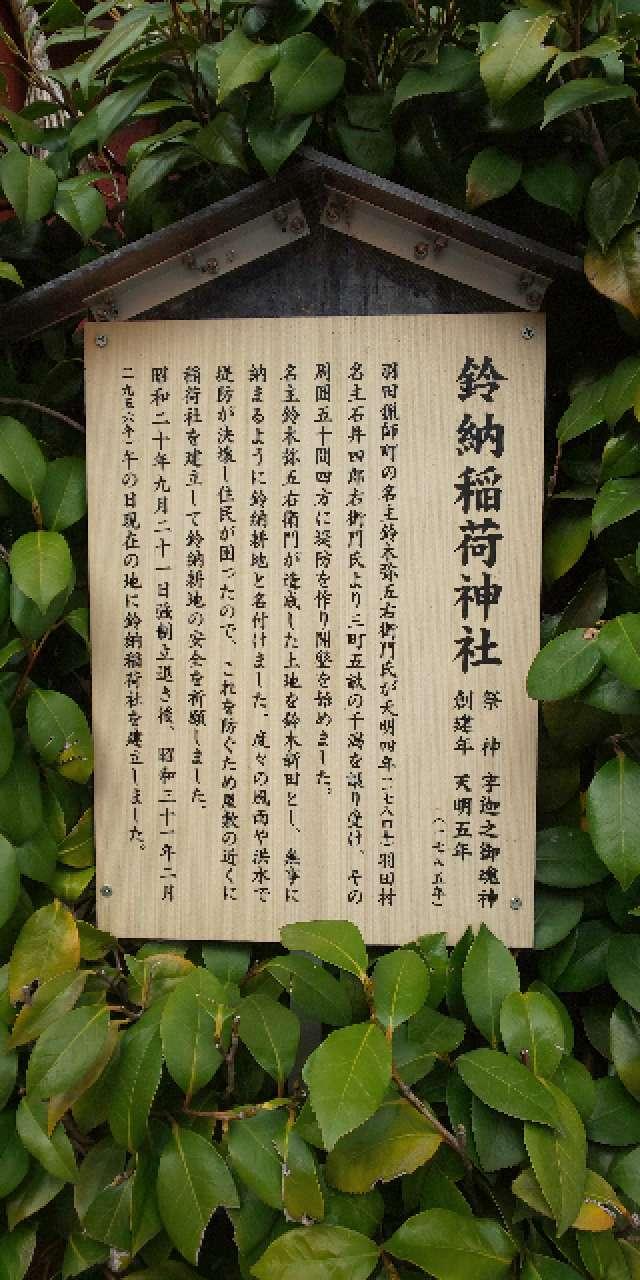 鈴納稲荷神社
祭 神 宇迦之御魂神
創建年 天明五年
（一七八五年）
羽田猟師町の名主鈴木弥五右衛門氏が天明四年（一七八四年）羽田村
名主石井四郎右衛門氏より三町五畝の干潟を譲り受け、その
周囲五十間四方に堤防を作り開墾を始めました。
名主鈴木弥五右衛門が造成した土地を鈴木新田とし、無事に
納まるように鈴納耕地と名付けました。度々の風雨や洪水で
堤防が決壊し住民が困ったので、これを防ぐため屋敷の近くに
稲荷社を建立して鈴納耕地の安全を祈願しました。
昭和二十年九月二十一日強制立退き後、昭和三十一年二月
二九五六年二午の日現在の地に鈴納稲荷社を建立しました。